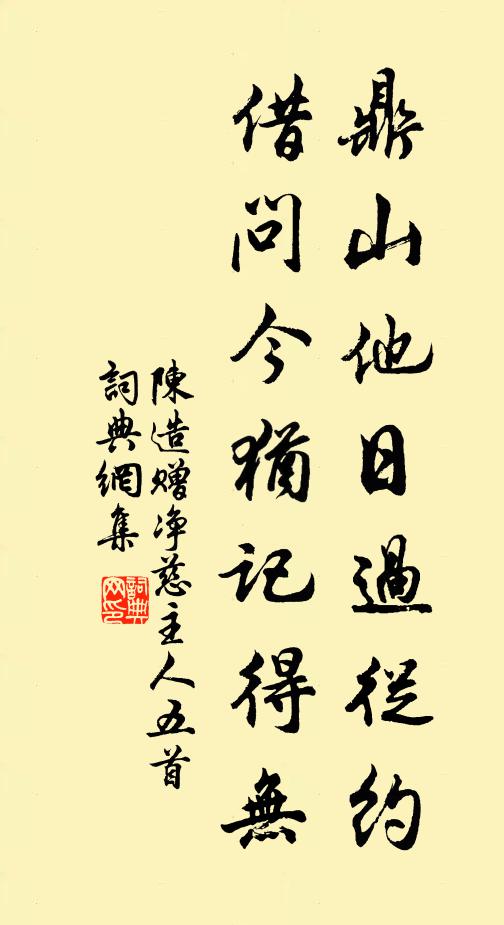 鼎山他日過從約
借問今猶記得無
陳造贈净慈主人五首
詞典網集
詞典网印